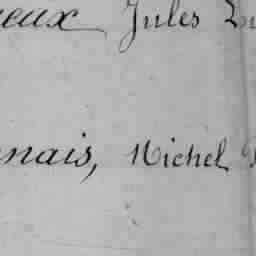 eux Jules
nais, Michel